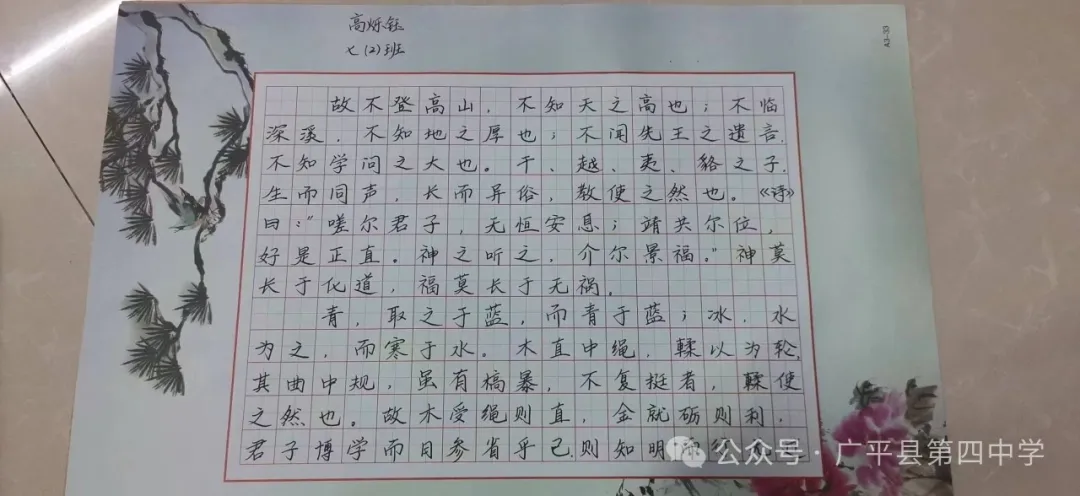 高烁钰
七(2)班
故不登高山，不知天之高也；不临
深溪，不知地之厚也；不闻先王之遗言，
不知学问之大也。干、越、夷、貉之子，
生而同声，长而异俗，教使之然也。《诗》
曰：“嗟尔君子，无恒安息；靖共尔位，
好是正直。神之听之，介尔景福。”神莫
长于化道，福莫长于无祸。
青，取之于蓝，而青于蓝；冰，水
为之，而寒于水。木直中绳，輮以为轮，
其曲中规，虽有槁暴，不复挺者，輮使
之然也。故木受绳则直，金就砺则利，
君子博学而日参省乎己，则知明而行无过
公众号·广平县第四中学